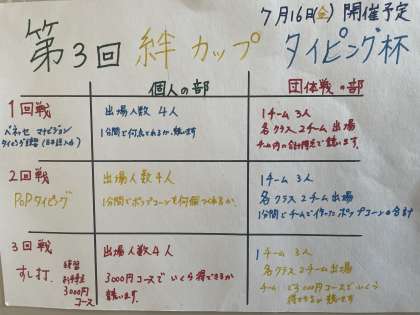 7月16日(金) 開催予定
第3回 絆カップ タイピング杯
個人の部
団体戦の部
1回戦
ベネッセ マナビジョン
タイピング練習(日本語入力)
出場人数 4人
1分間で何点とれるか、競います
1チーム 3人
各クラス 2チーム 出場
チーム内の合計得点で競います。
2回戦
POPタイピング
出場人数 4人
1分間でポップコーンを何個つくれるか、
1チーム 3人
各クラス 2チーム 出場
1分間でチームで作ったポップコーンの合計
3回戦
すし打
練習
お手軽
3000円
コース
出場人数 4人
3000円コースでいくら得できるか
競います。
1チーム 3人
各クラス 2チーム出場
チームで3000円コースでいくら
得できるか競います